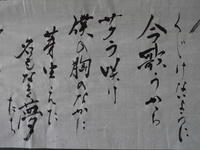 くじけないように
今歌うから
サクラ咲け
僕の胸のなかに
芽生えた
名もなき夢
たち